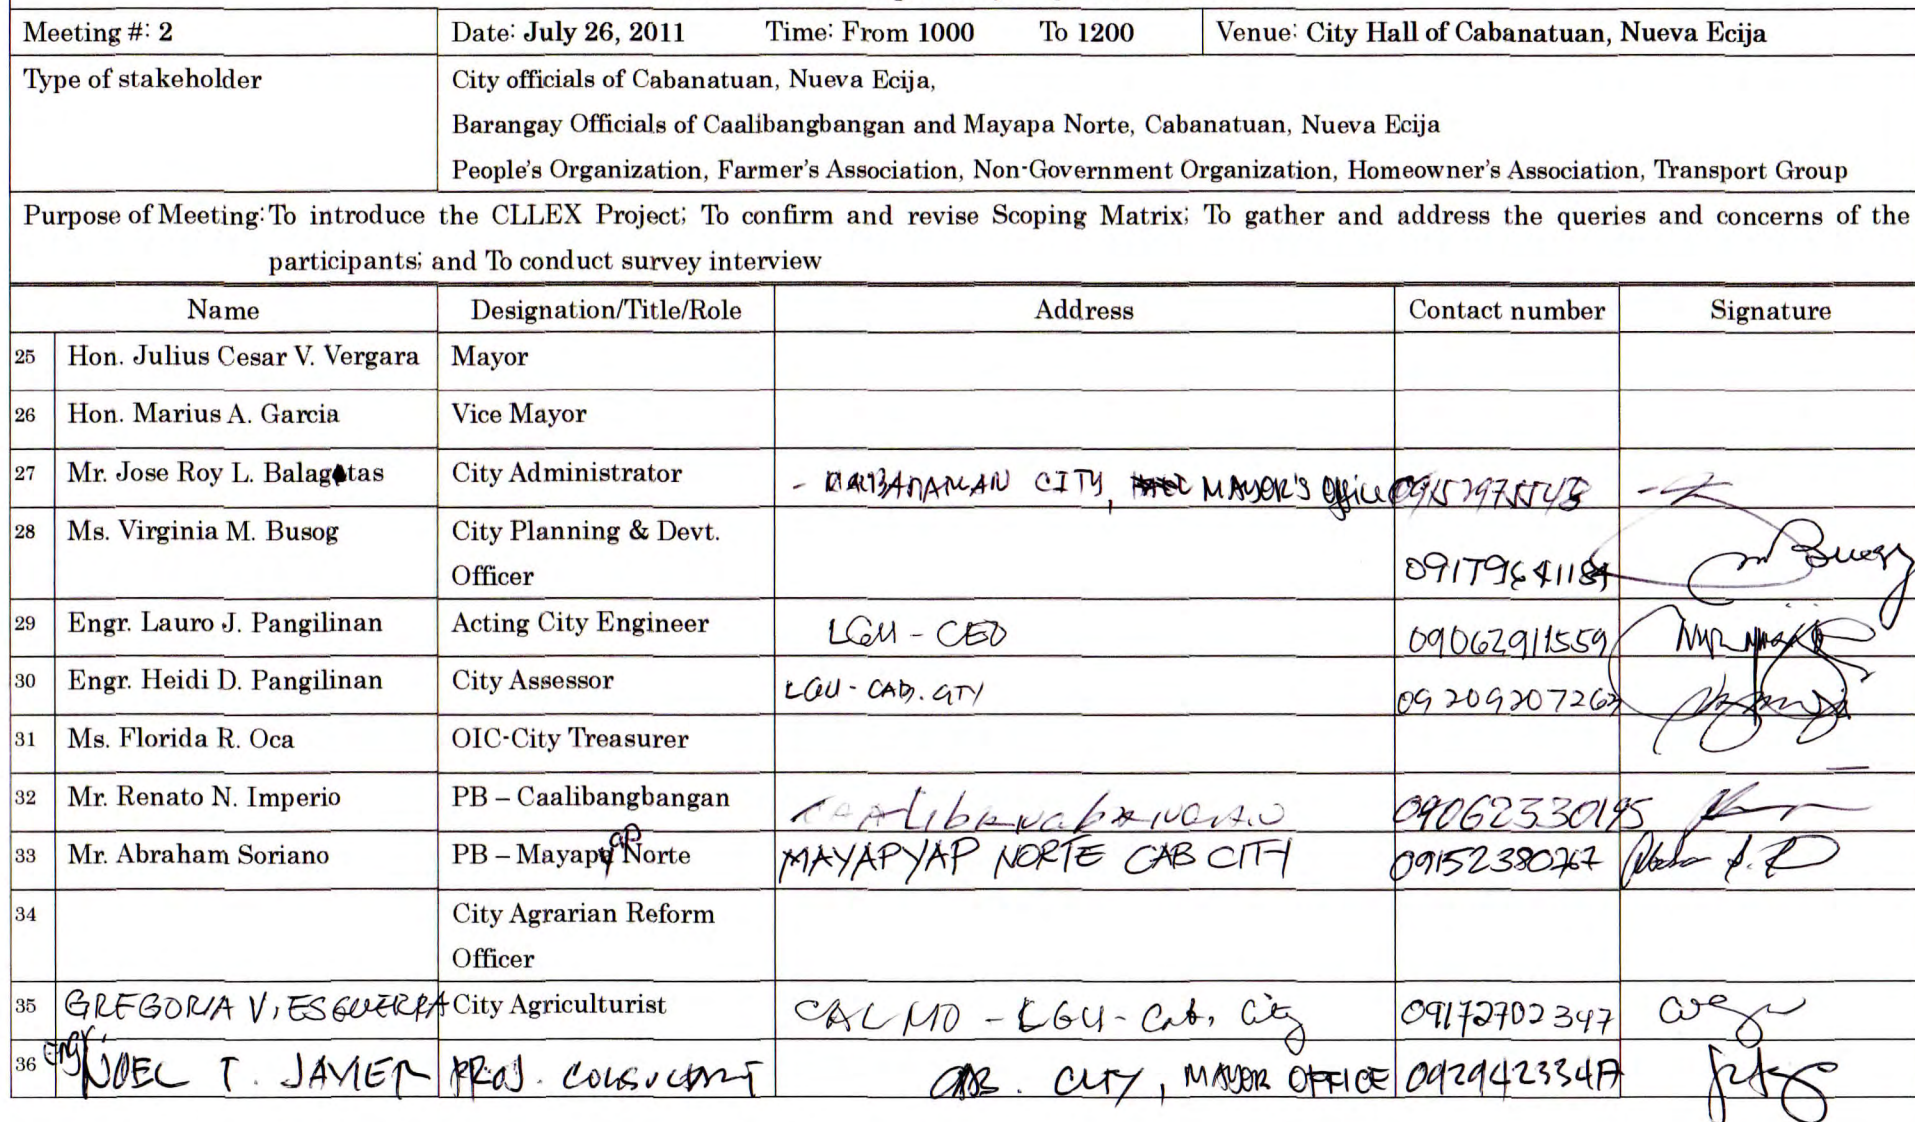 Meeting #: 2 Date: July 26, 2011 Time: From 1000 To 1200 Venue: City Hall of Cabanatuan, Nueva Ecija
Type of stakeholder City officials of Cabanatuan, Nueva Ecija,
Barangay Officials of Caalibangbangan and Mayapa Norte, Cabanatuan, Nueva Ecija
People's Organization, Farmer's Association, Non-Government Organization, Homeowner's Association, Transport Group
Purpose of Meeting: To introduce the CLLEX Project; To confirm and revise Scoping Matrix; To gather and address the queries and concerns of the
participants; and To conduct survey interview
Name Designation/Title/Role Address Contact number Signature
25 Hon. Julius Cesar V. Vergara Mayor
26 Hon. Marius A. Garcia Vice Mayor
27 Mr. Jose Roy L. Balagtas City Administrator - CITY, MAYOR'S Office
28 Ms. Virginia M. Busog City Planning & Devt.
Officer
29 Engr. Lauro J. Pangilinan Acting City Engineer LGU - CEO 09062911559
30 Engr. Heidi D. Pangilinan City Assessor LGU - CAB. CITY 09209207263
31 Ms. Florida R. Oca OIC-City Treasurer
32 Mr. Renato N. Imperio PB – Caalibangbangan 09062330195
33 Mr. Abraham Soriano PB – Mayapyap Norte MAYAPYAP NORTE CAB CITY 09152380767
34 City Agrarian Reform
Officer
35 GREGORIA V. ESGUERRA City Agriculturist CALMO - LGU - Cab. City 09172702347
36 Engr. NOEL T. JAVIER PROJ. CONSULTANT CAB. CITY, MAYOR OFFICE